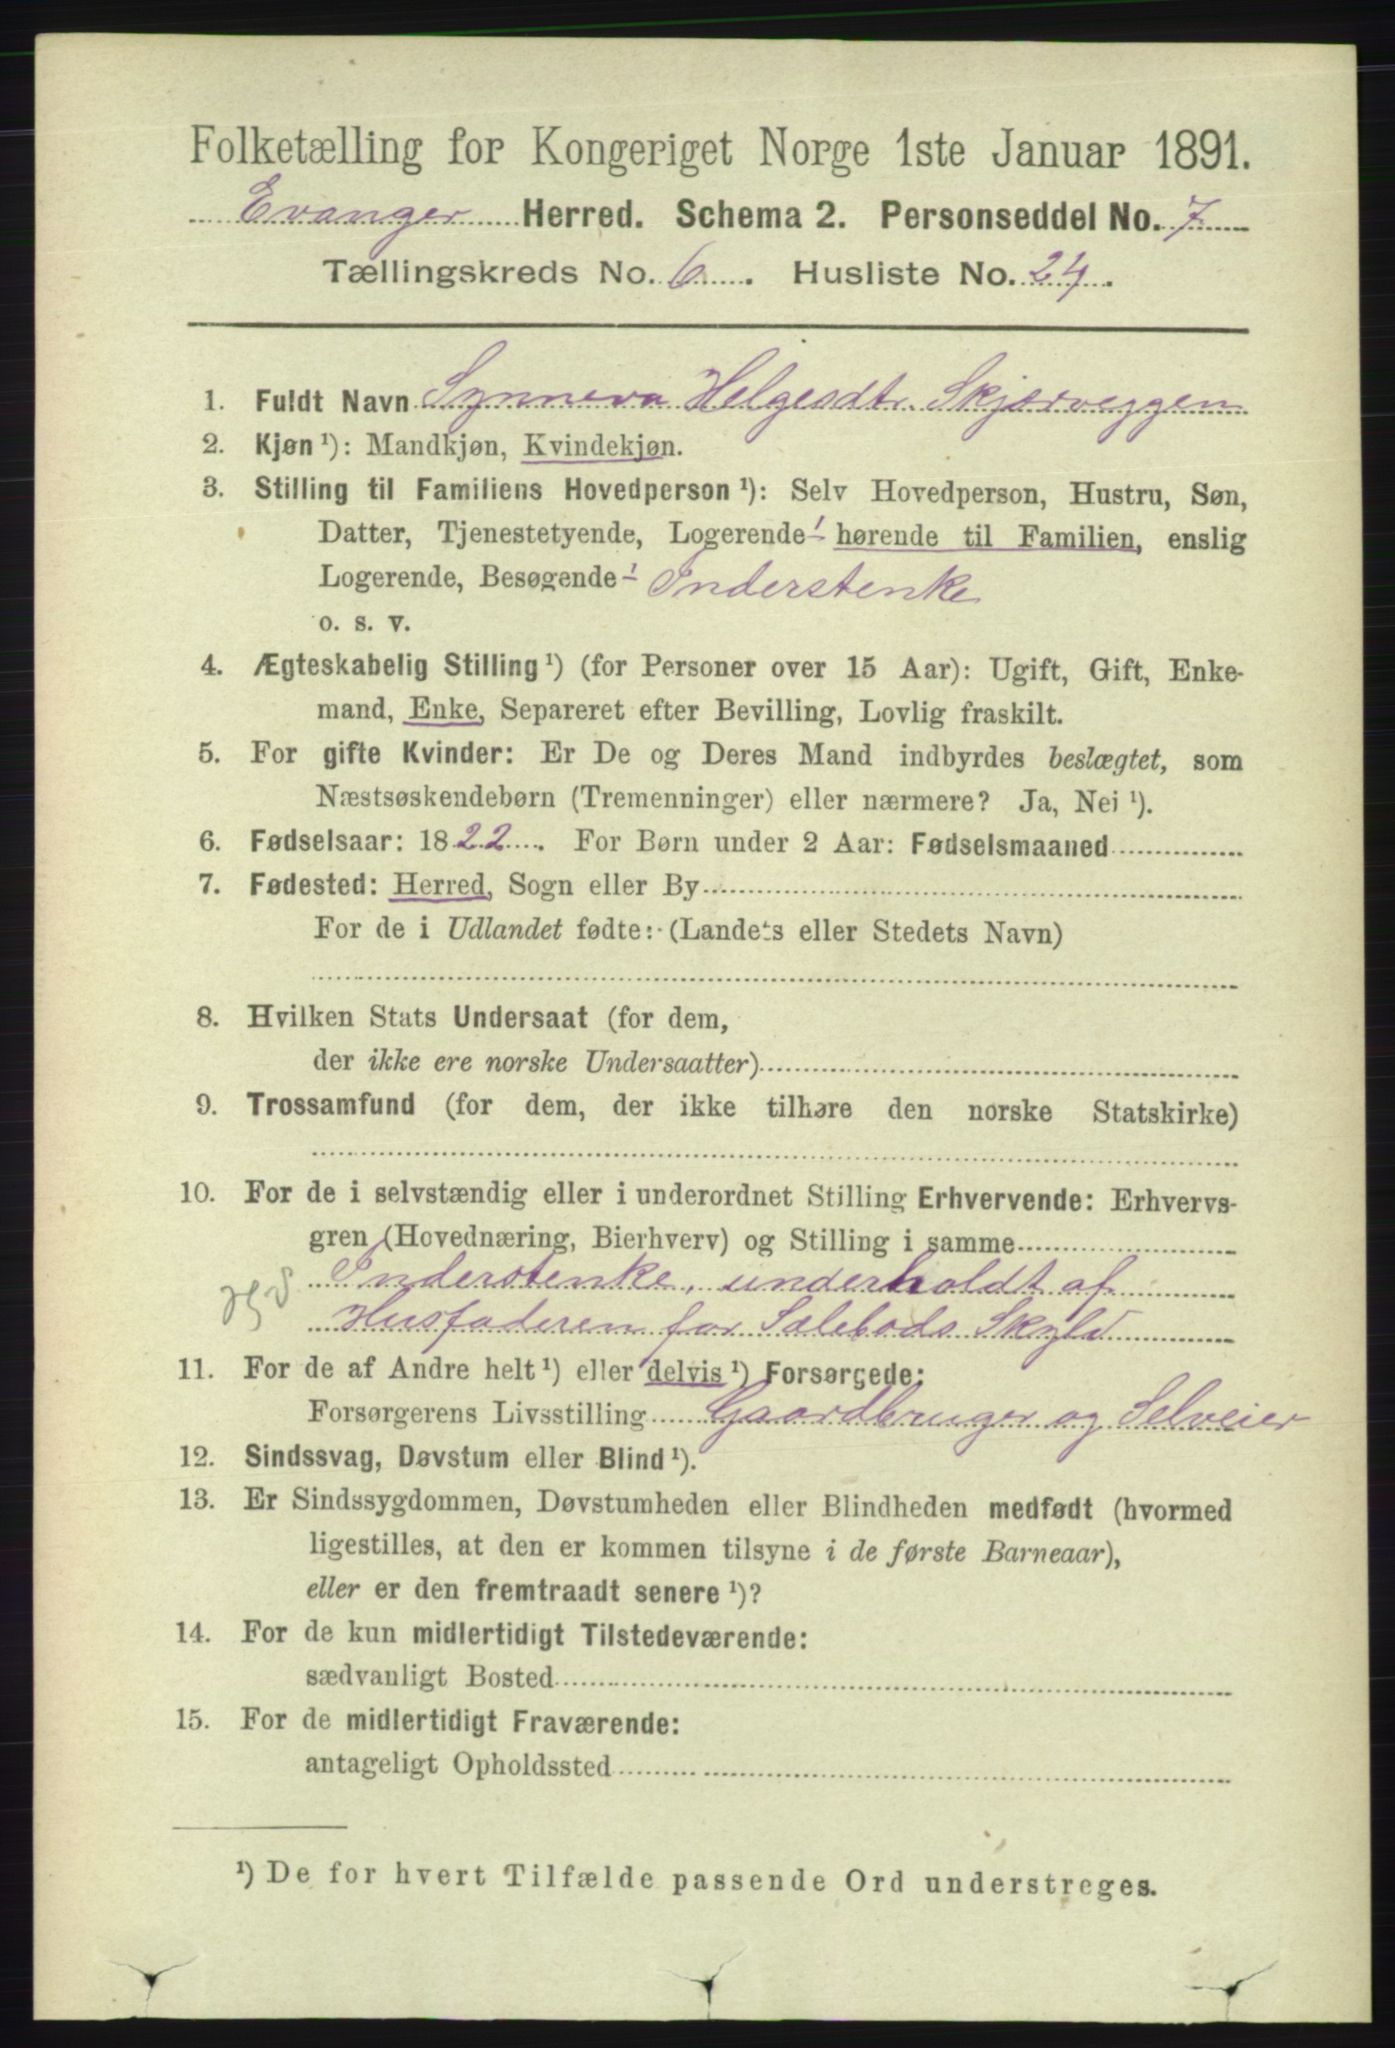 Folketælling for Kongeriget Norge 1ste Januar 1891.
Evanger Herred. Schema 2. Personseddel No. 7
Tællingskreds No. 6. Husliste No. 24.
1. Fuldt Navn Synneva Helgesdtr. Skjærveggen
2. Kjøn ¹): Mandkjøn, Kvindekjøn.
3. Stilling til Familiens Hovedperson ¹): Selv Hovedperson, Hustru, Søn,
Datter, Tjenestetyende, Logerende ¹ hørende til Familien, enslig
Logerende, Besøgende ¹ Inderstenke
o. s. v.
4. Ægteskabelig Stilling ¹) (for Personer over 15 Aar): Ugift, Gift, Enke-
mand, Enke, Separeret efter Bevilling, Lovlig fraskilt.
5. For gifte Kvinder: Er De og Deres Mand indbyrdes beslægtet, som
Næstsøskendebørn (Tremenninger) eller nærmere? Ja, Nei ¹).
6. Fødselsaar: 1822. For Børn under 2 Aar: Fødselsmaaned
7. Fødested: Herred, Sogn eller By
For de i Udlandet fødte: (Landets eller Stedets Navn)
8. Hvilken Stats Undersaat (for dem,
der ikke ere norske Undersaatter)
9. Trossamfund (for dem, der ikke tilhøre den norske Statskirke)
10. For de i selvstændig eller i underordnet Stilling Erhvervende: Erhvervs-
gren (Hovednæring, Bierhverv) og Stilling i samme
Inderstenke, underholdt af
Husfaderen for Salebods Skyld
11. For de af Andre helt ¹) eller delvis ¹) Forsørgede:
Forsørgerens Livsstilling Gaardbruger og Selveier
12. Sindssvag, Døvstum eller Blind ¹).
13. Er Sindssygdommen, Døvstumheden eller Blindheden medfødt (hvormed
ligestilles, at den er kommen tilsyne i de første Barneaar),
eller er den fremtraadt senere ¹)?
14. For de kun midlertidigt Tilstedeværende:
sædvanligt Bosted
15. For de midlertidigt Fraværende:
antageligt Opholdssted
¹) De for hvert Tilfælde passende Ord understreges.